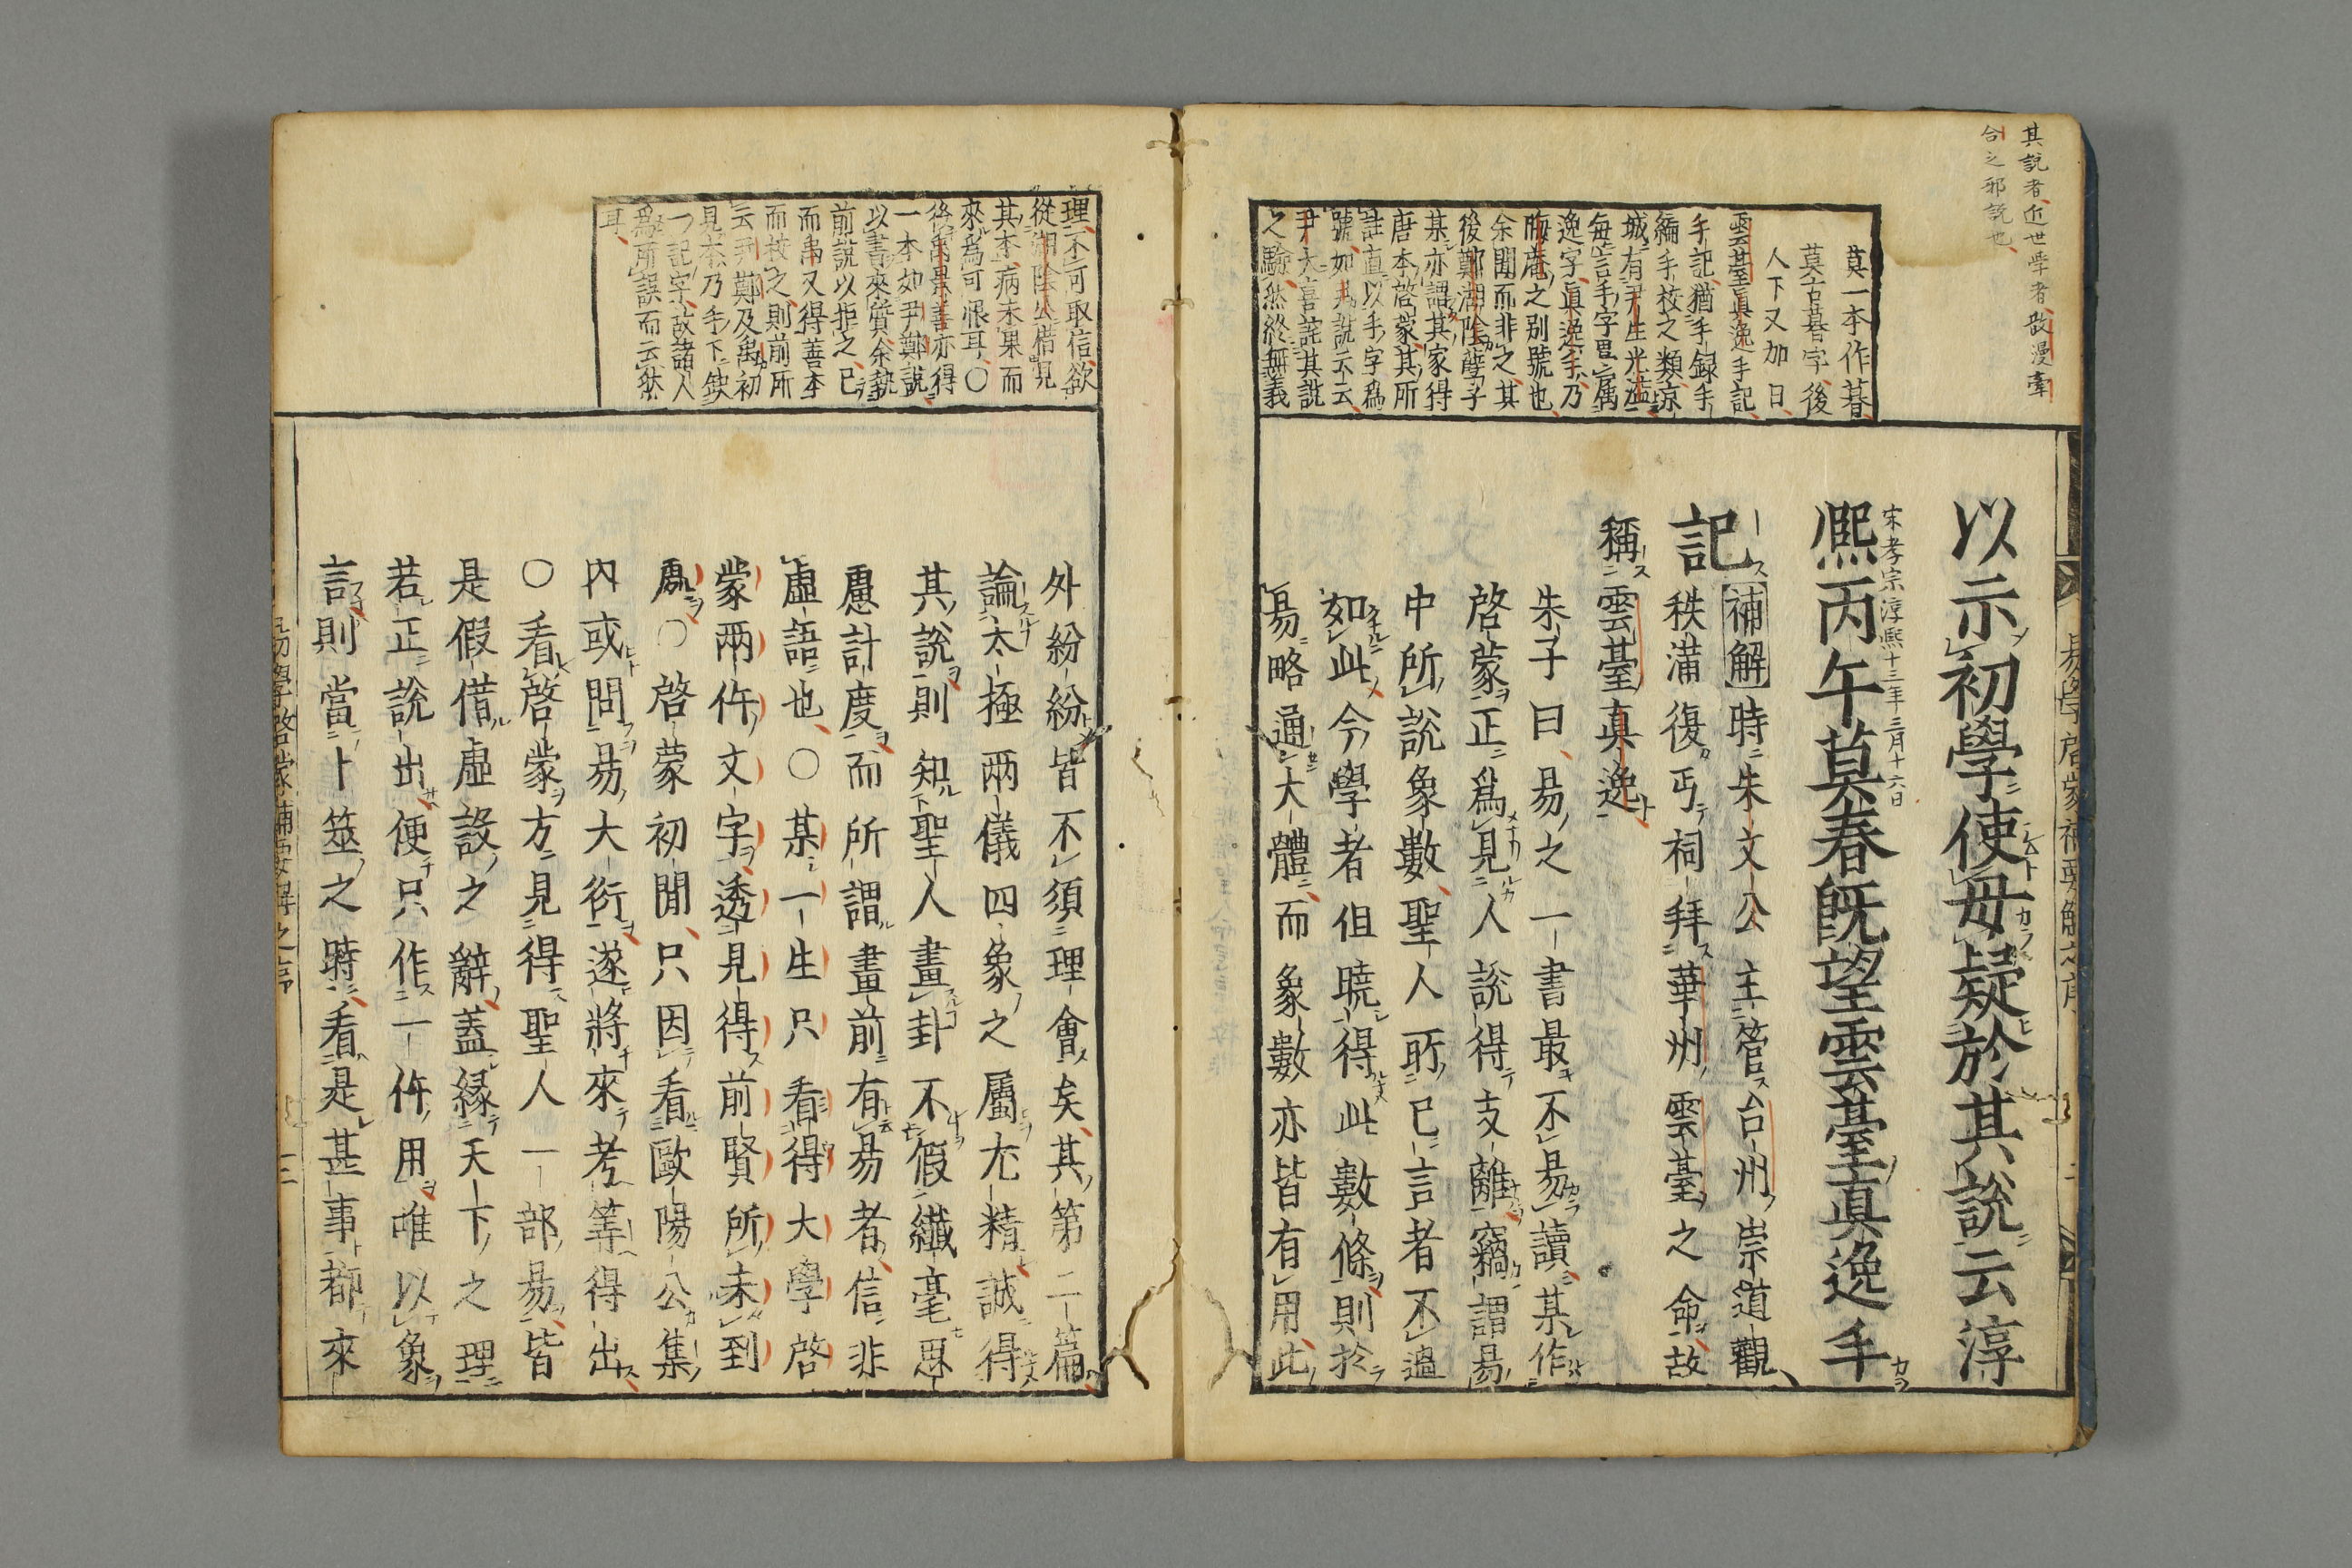 其說者近世學者散漫牽
合之邪說也
莫一本作暮
莫古暮字後
人下又加日
雲臺眞逸手記
手記猶手録手
編手校之類凉
城有尹生光溢
每言手字畏属
逸字眞逸手乃
晦庵之别號也
余聞而非之其
後鄭湖陰孽子
某亦謂其家得
唐本啓蒙其所
註直以手字爲
號如尹說云云
尹大喜詫其說
之驗然終無義
以示初學使毋疑於其說云淳
熙丙午莫春既望雲臺眞逸手
宋孝宗淳熙十三年三月十六日
記
補解時朱文公主管台州崇道觀
秩滿復丐祠拜華州雲臺之命故
稱雲臺真逸
朱子曰易之一書最不易讀某作
啓蒙正爲見人說得支離竊謂易
中所說象數聖人所已言者不過
如此今學者但曉得此數條則於
易略通大體而象數亦皆有用此
易學啓蒙補要解之序
理不可取信欲
從湖陰公借見
其本病未果而
來爲可恨耳○
後禹景善亦得
一本如尹鄭說
以書來質余執
前說以拒之已
而禹又得善本
而校之則前所
云尹鄭及禹初
見本乃手下缺
一記字故諸人
爲所誤而云然
耳
外紛紛皆不須理會矣其第二篇
論太極兩儀四象之屬尤精誠得
其說則知聖人畫卦不假纖毫思
慮計度而所謂畫前有易者信非
虛語也○某一生只看得大學啓
蒙兩件文字透見得前賢所未到
處○啓蒙初聞只因看歐陽公集
內或問易大衍遂將來考筭得出
○看啓蒙方見得聖人一部易皆
是假借虛設之辭蓋緣天下之理
若正說出便只作一件用唯以象
言則當卜筮之時看是甚事都來
易學啓蒙補要解之序 三